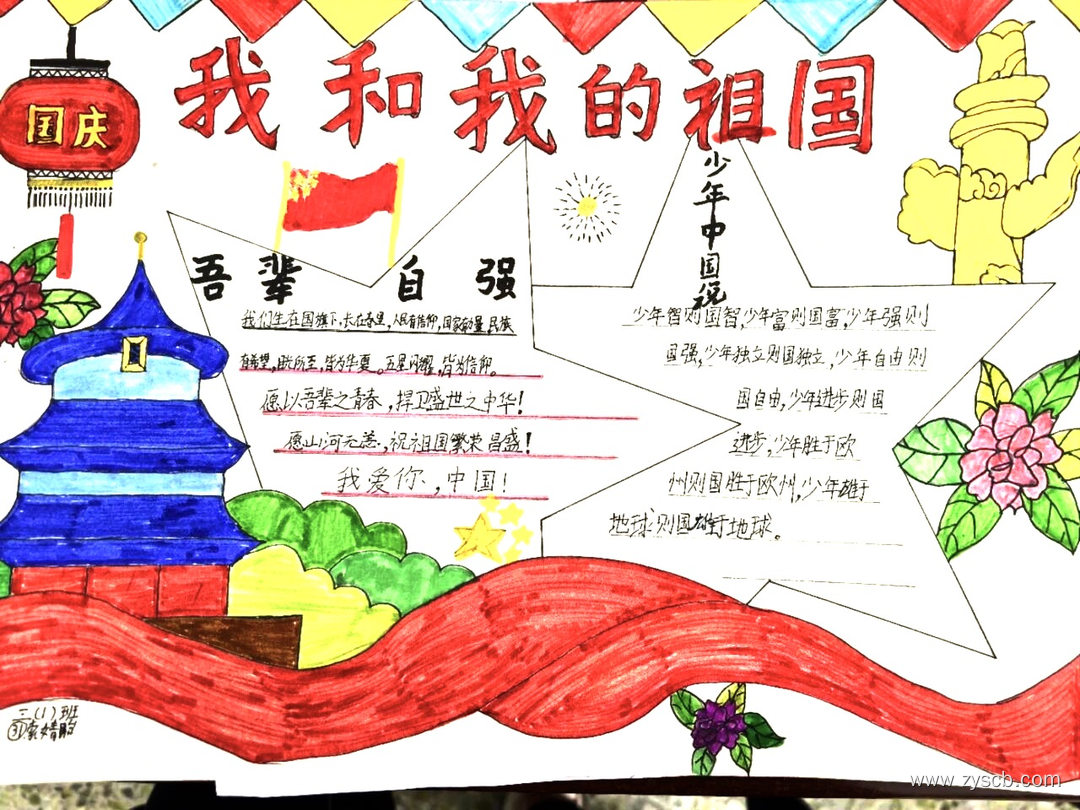 我和我的祖国
国庆
吾辈自强
我们生在国旗下,长在春里,人民有信仰,国家有力量,民族
有希望,目光所至,皆为华夏。五星闪耀,皆为信仰。
愿以吾辈之青春,捍卫盛世之中华!
愿山河无恙,祝祖国繁荣昌盛!
我爱你,中国!
少年中国说
少年智则国智,少年富则国富,少年强则
国强,少年独立则国独立,少年自由则
国自由,少年进步则国
进步,少年胜于欧
州则国胜于欧州,少年雄于
地球则国雄于地球。
三(1)班
www.zyscb.com